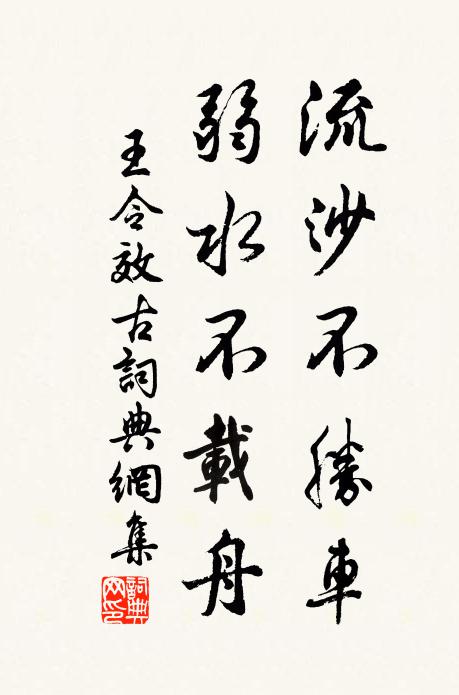 流沙不勝車
弱水不載舟
王令效古詞典網集
詞典网印